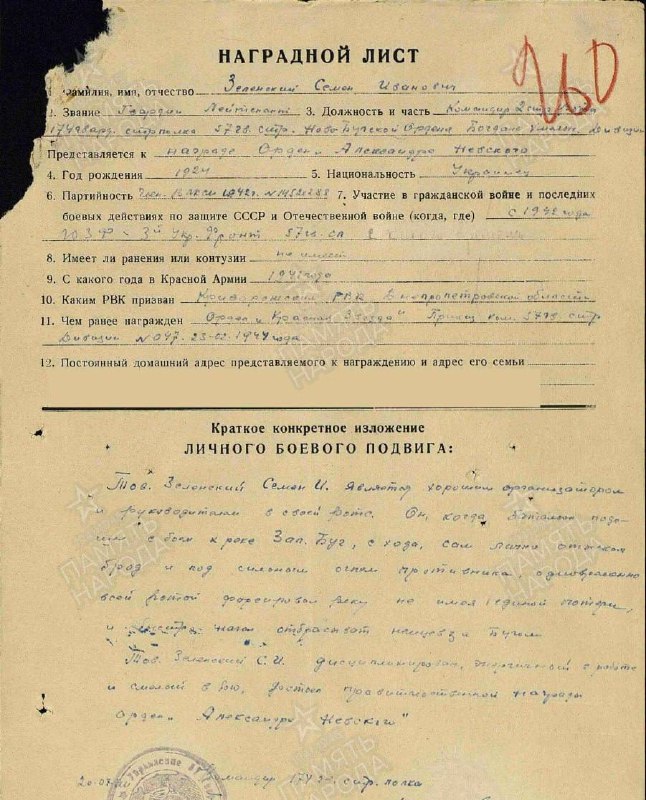 260
НАГРАДНОЙ ЛИСТ
1. Фамилия, имя, отчество Зеленский Семен Иванович
2. Звание Гвардии Лейтенант 3. Должность и часть Командир
стр. Ново-Бугской Ордена Богдана дивизии
Представляется к награде Ордена Александра Невского
4. Год рождения 1924 5. Национальность Украинец
6. Партийность Член ВЛКСМ 1942г. 7. Участие в гражданской войне и последующих
боевых действиях по защите СССР и Отечественной войне (когда, где) с 1942 года
ЮЗФ – 3й Укр. Фронт 57 гв. сд
8. Имеет ли ранения или контузии не имеет
9. С какого года в Красной Армии 1942 года
10. Каким РВК призван РВК Днепропетровской области
11. Чем ранее награжден Орден „Красная Звезда" 57 гв. стр
Дивизии 1944 года
12. Постоянный домашний адрес представляемого к награждению и адрес его семьи
Краткое конкретное изложение
ЛИЧНОГО БОЕВОГО ПОДВИГА:
Тов. Зеленский Семен И. является хорошим организатором
и руководителем в своей роте. Он, когда батальон подо-
шел с боем к реке Зап. Буг, с хода, сам лично отыскал
брод и под сильным огнем противника, одновременно
всей ротой форсировал реку не имея единой потери,
и отбрасывает немцев за Бугом
Тов. Зеленский С.И. дисциплинирован, энергичный в работе
и смелый в бою, достоин правительственной награды
ордена Александра Невского"
Командир 174 стр. полка
ПАМЯТЬ НАРОДА